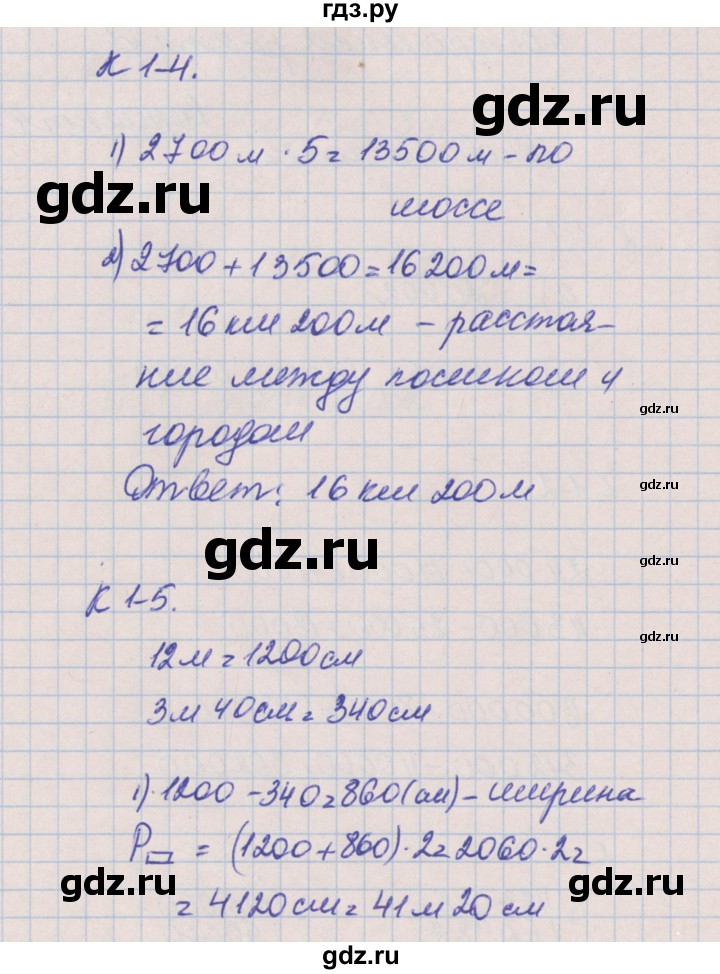 гдз.ру
К 1-4.
gdz.ru
1) 2700 м · 5 = 13500 м - по
шоссе
gdz.ru
2) 2700 + 13500 = 16200 м =
= 16 км 200 м - расстоя-
ние между поселком и
gdz.ru
городом
Ответ: 16 км 200 м
gdz.ru
gdz.ru
gdz.ru
К 1-5.
gdz.ru
12 м = 1200 см
3 м 40 см = 340 см
1) 1200 - 340 = 860 (см) - ширина
P▭ = (1200 + 860) · 2 = 2060 · 2 =
gdz.ru
gdz.ru
= 4120 см = 41 м 20 см
gdz.ru